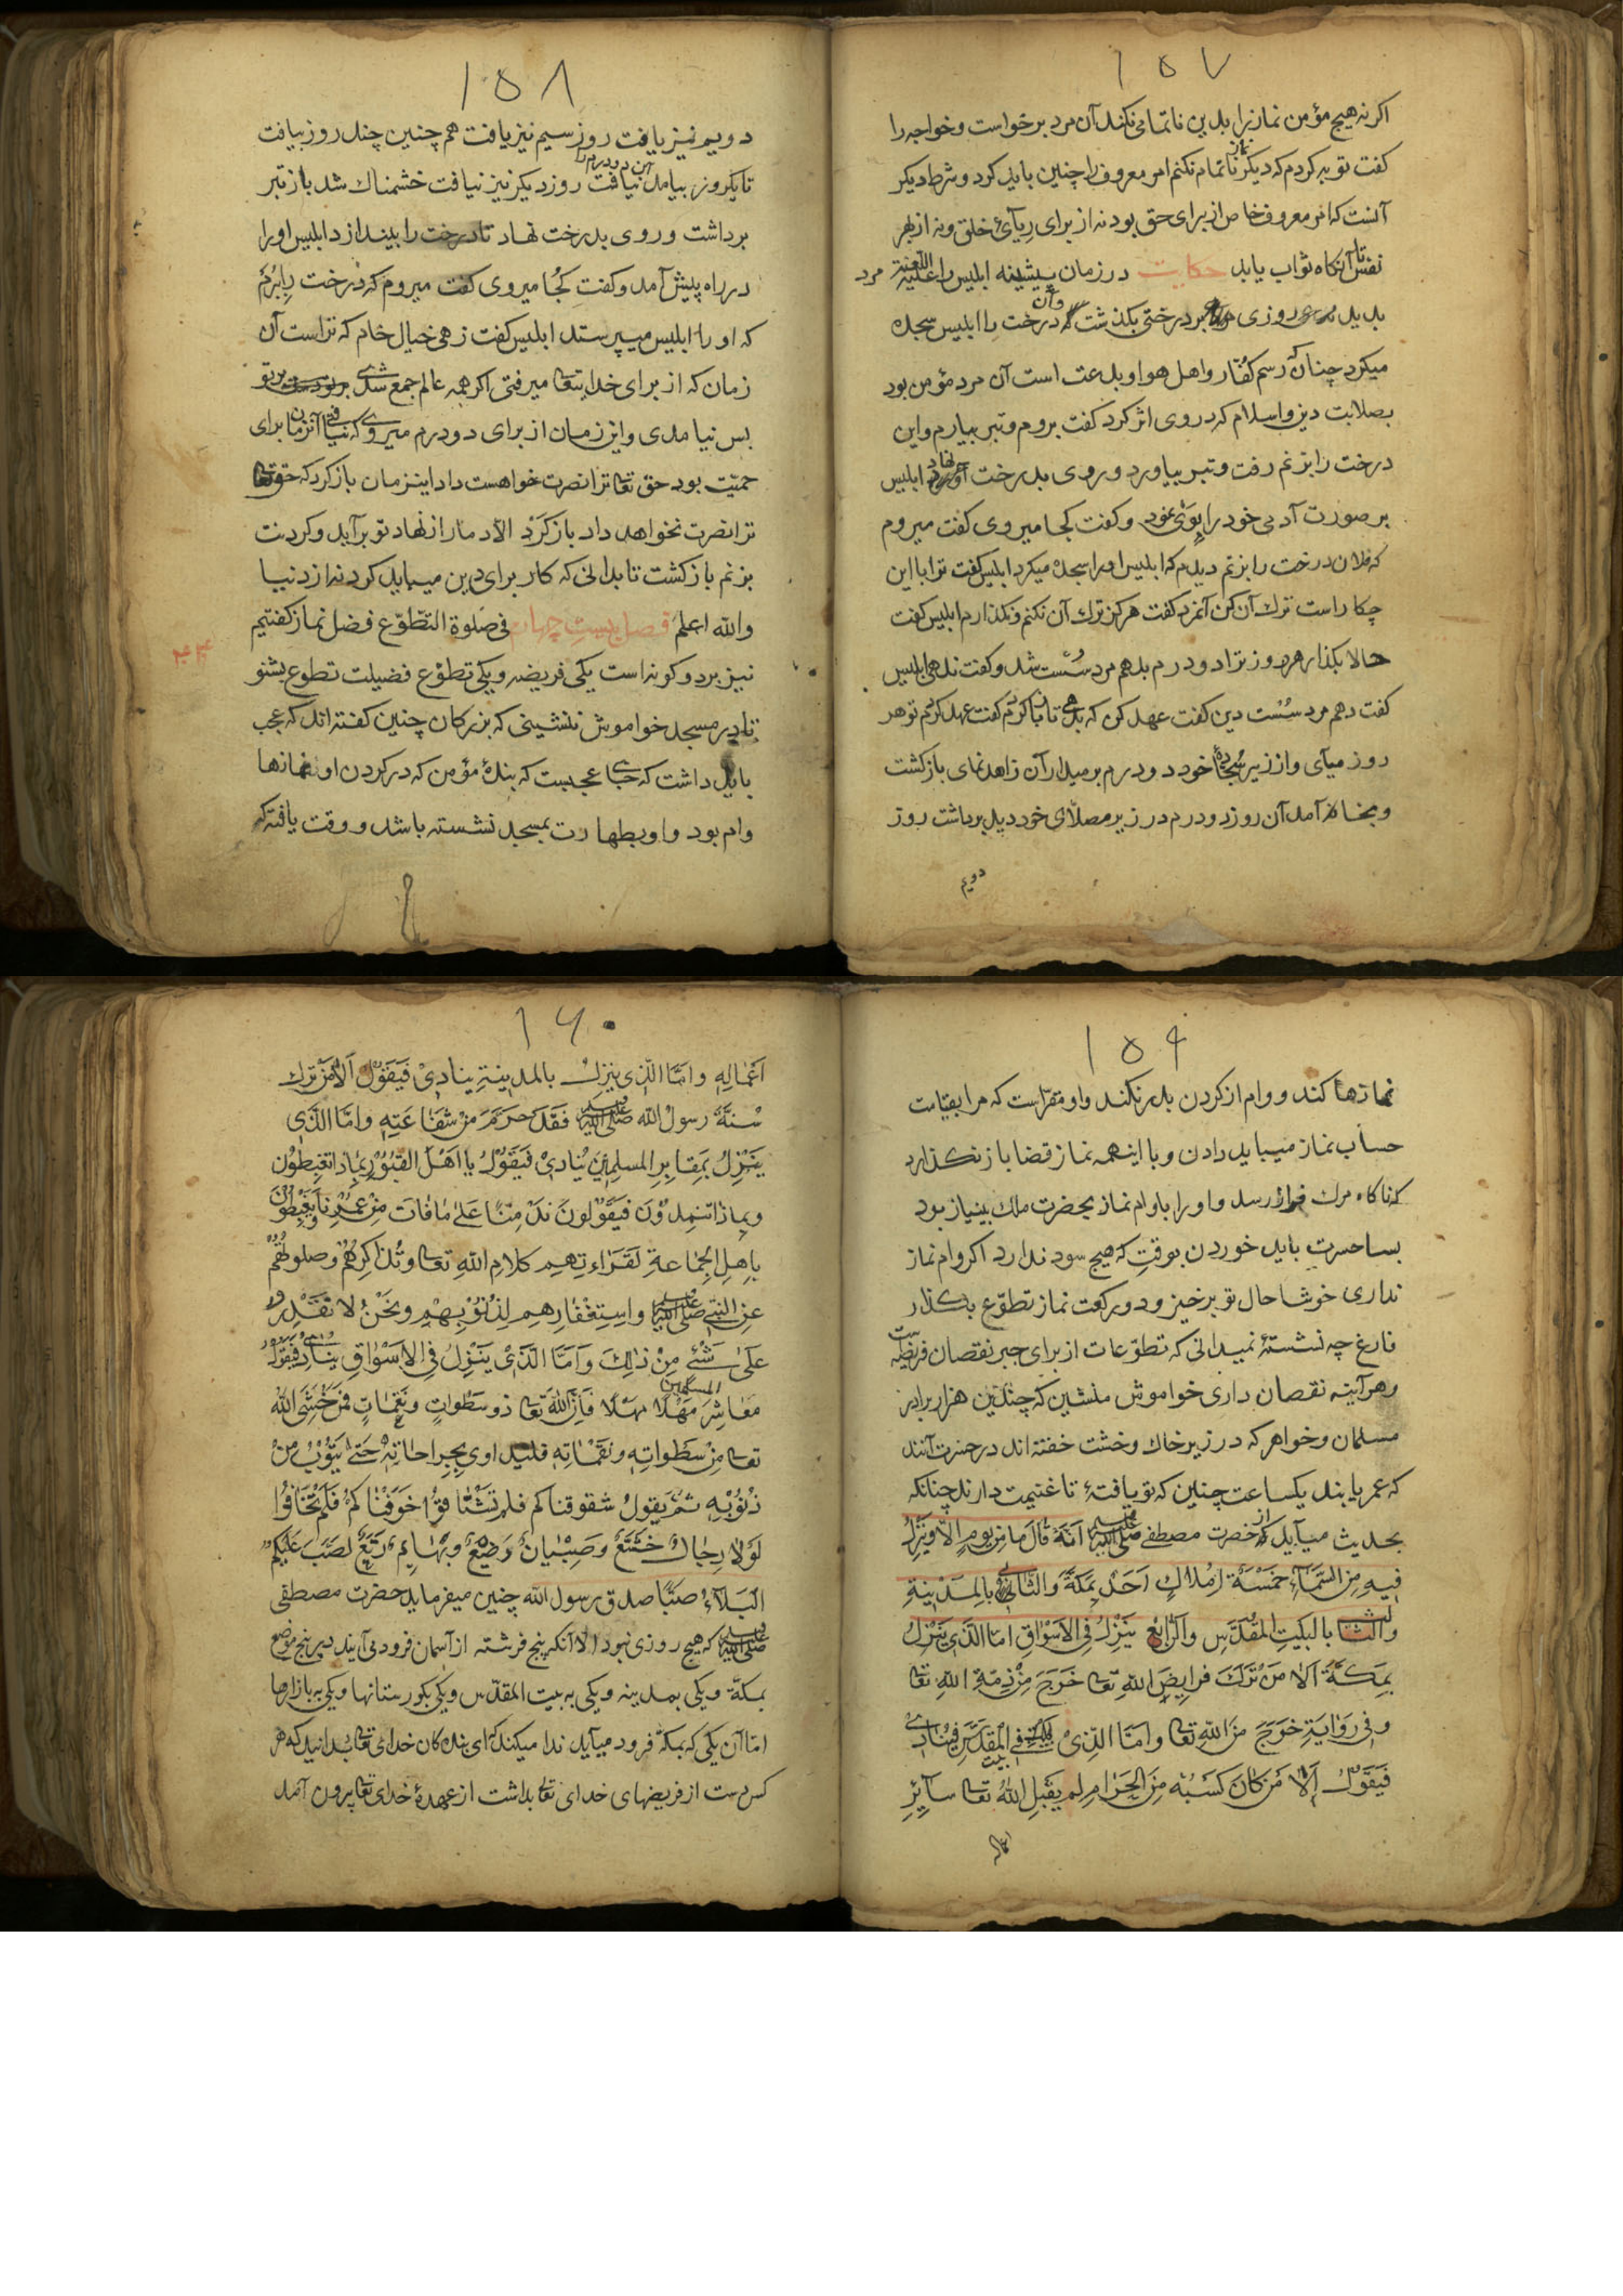 ١٥٧
اکرنه هیچ مؤمن نماز را بدین ناتمامی نکند آن مرد برخواست و خواجه را
کفت توبه کردم که دیکر نماز ناتمام نکنم امر معروف را چنین باید کرد و شرط دیکر
آنست که امر معروف خاص از برای حق بود نه از برای ریآئ خلق و نه از بهر
نفس تا آنکاه ثواب یابد حکایت در زمان پیشینه ابلیس را علیه اللعنة مرد
بدید روزی بر درختی بکذشت و آن درخت را ابلیس سجده
میکرد چنان که رسم کفّار و اهل هوا و بدعت است آن مرد مؤمن بود
بصلابت دین و اسلام که در وی اثر کرد کفت بروم و تبر بیارم و این
درخت را بزنم رفت و تبر بیاورد و روی بدرخت نهاد ابلیس
بر صورت آدمی خود را بوی نمود و کفت کجا میروی کفت میروم
که فلان درخت را بزنم دیدم که ابلیس او را سجده میکرد ابلیس کفت ترا با این
چکار است ترك آن کن آنمرد کفت هرکز ترك آن نکنم و نکذارم ابلیس کفت
حالا بکذار هر روز ترا دو درم بدهم مرد سُست شد و کفت ندهی ابلیس
کفت دهم مرد سُست دین کفت عهد کن که بدهی تا باز کردم کفت عهد کردم تو هر
روز میآی و از زیر سجّادۀ خود دو درم بر میدار آن زاهد نمای بازکشت
و بخانه آمد آن روز دو درم در زیر مصلّای خود دید برداشت روز
دویم
١٥٨
دویم نیز یافت روز سیم نیز یافت هم چنین چند روز بیافت
تا یکروز بیامد این دو درم را نیافت روز دیکر نیز نیافت خشمناك شد باز تبر
برداشت و روی بدرخت نهاد تا درخت را بیندازد ابلیس او را
در راه پیش آمد و کفت کُجا میروی کفت میروم که درخت را بِبُرم
که او را ابلیس میپرستد ابلیس کفت زهی خیال خام که تراست آن
زمان که از برای خدا تعا میرفتی اکر همه عالم جمع شدی بر تو
بس نیامدی و این زمان از برای دو درم میروی که نیافتی آنزمان برای
حمیّت بود حق تعا ترا نصرت خواهست داد اینزمان بازکرد که حق تعا
ترا نصرت نخواهد داد بازکَرد الا دمار از نهاد تو برآید و کردنت
بزنم بازکشت تا بدانی که کار برای دین میباید کرد نه از دنیا
والله اعلم فصل بیست چهارم فی صلوة التطّوّع فضل نماز کفتیم
نیز بر دو کونه است یکی فریضه و یکی تطوّع فضیلت تطوع بشنو
تا در مسجد خواموش ننشینی که بزرکان چنین کفته اند که عجب
باید داشت که جای عجبست که بندۀ مؤمن که در کردن او نمازها
وام بود و او بطهارت بمسجد نشسته باشد و وقت یافته که
١٥٩
نمازها کند و وام از کردن بدر نکند و او مقرّاست که مرا بقیامت
حساب نماز میباید دادن و با اینهمه نماز قضا باز نکذارد
که ناکاه مرك فراز رسد و او را با وام نماز بحضرت ملك بینیاز بود
بسا حسرت باید خوردن بوقتِ که هیچ سود ندارد اکر وام نماز
نداری خوشا حال تو برخیز و دو رکعت نماز تطوّع بکذار
فارغ چه نشستۀ نمیدانی که تطوّعات از برای جبر نقصان فریضه است
و هر آینه نقصان داری خواموش منشین که چندین هزار برادر
مسلمان و خواهر که در زیر خاك و خشت خفته اند در حسرت آنند
که عمر یابند یکساعت چنین که تو یافتۀ تا غنیمت دارند چنانکه
بحدیث میآید که از حضرت مصطفی صلی الله علیه وسلم انّهُ قَالَ ما مِن یومٍ اِلّا ویَنزِلُ
فیهِ مِنَ السَّمَاءِ خَمْسَةُ اَمْلاكٍ اَحَدٌ بِمَكَّةَ والثّانی بالمَدینةِ
والثالث بالبَیْتِ المُقَدَّسِ والرّابِعُ یَنزِلُ فِی الاَسْوَاقِ امّا الّذی یَنْزِلُ
بِمَكَّةَ اَلَا مَنْ تَرَكَ فَرایِضَ اللهِ تعا خَرَجَ مِنْ ذِمّةِ اللهِ تعا
و فی رَوایَةٍ خَرَجَ مِنَ اللهِ تعا وامّا الّذیْ یَنزِلُ فی بیت المُقَدَّسِ فیُنادی
فَیَقُولُ اَلَا مَن كانَ كَسَبُهُ مِنَ الحَرامِ لم یَقبَلِ اللهُ تعا سآیِرِ
اعماله
١٦٠
اَعْمَالِهِ وامّا الّذی یَنزِلُ بالمدینةِ ینادیْ فَیَقُولُ اَلا مَنْ تَرَكَ
سُنّةَ رسولُ الله صلی الله علیه وسلم فَقَدْ حرَمَ مِنْ شَفاعَتِهِ وامّا الّذی
یَنْزِلُ بِمَقابِرِ المسلِمِینَ یُنادیْ فَیَقُولُ یا اَهْلَ القُبُوْرِ بِماذا تغبِطوُن
وبماذا تندِمُوْنَ فیَقُولونَ نَدَ مِنّا عَلی مافاتَ مِنْ عُمُرِنا ونَغْبِطُونَ
باهل الجماعةِ لقَرَاءتِهِم كلامِ اللهِ تعا وتُذَاكِرِهُمْ وصلوتُهُمْ
عن النبی صلی الله علیه وسلم واستِغْفارِهِم لِذُنُوبِهِمِ ونَحْنُ لا نَقْدِرُ
عَلی شئی مِنْ ذٰلِكَ وَاَمّا الّذیْ یَنْزِلُ فی الاَسْوَاقِ یُنادی فَیَقُولُ
مَعَاشِرَ المسلمین مَهْلًا مهْلًا فَاِنّ اللهَ تعا ذو سَطواتٍ ونَقِماتٍ فَمَن خَشَیَ اللهَ
تعا مِنْ سَطَواتِهِ ونَقَماتِهِ فلیداوی بِجِراحاتِهِ حَتّی یَتُوْبُ مِنْ
ذُنُوْبِهِ ثمّ یقولُ شقوقناكم فلم تَشْتا قُوا خوّفْناكُمْ فَلَمْ تخَافُوا
لَوْلا رِجالٌ خُشَّعٌ وَصِبْیانٌ رضّعٌ وبَهایِمٌ رتّعٌ لصَبَّ عَلَیْكم
البَلَاءُ صَبًّا صدق رسول الله چنین میفرماید حضرت مصطفی
صلی الله علیه وسلم که هیچ روزی نبود الا آنکه پنج فرشته از آسمان فرود می آیند بپنج موضع
بمکّة و یکی بمدینه و یکی به بیت المقدّس و یکی بکورستانها و یکی به بازارها
امّا آن یکی که بمکّة فرود میآید ندا میکند که ای بندکان خدای تعا بدانید که هر
کس دست از فریضهای خدای تعا بداشت از عهدۀ خدای تعا بیرون آمد